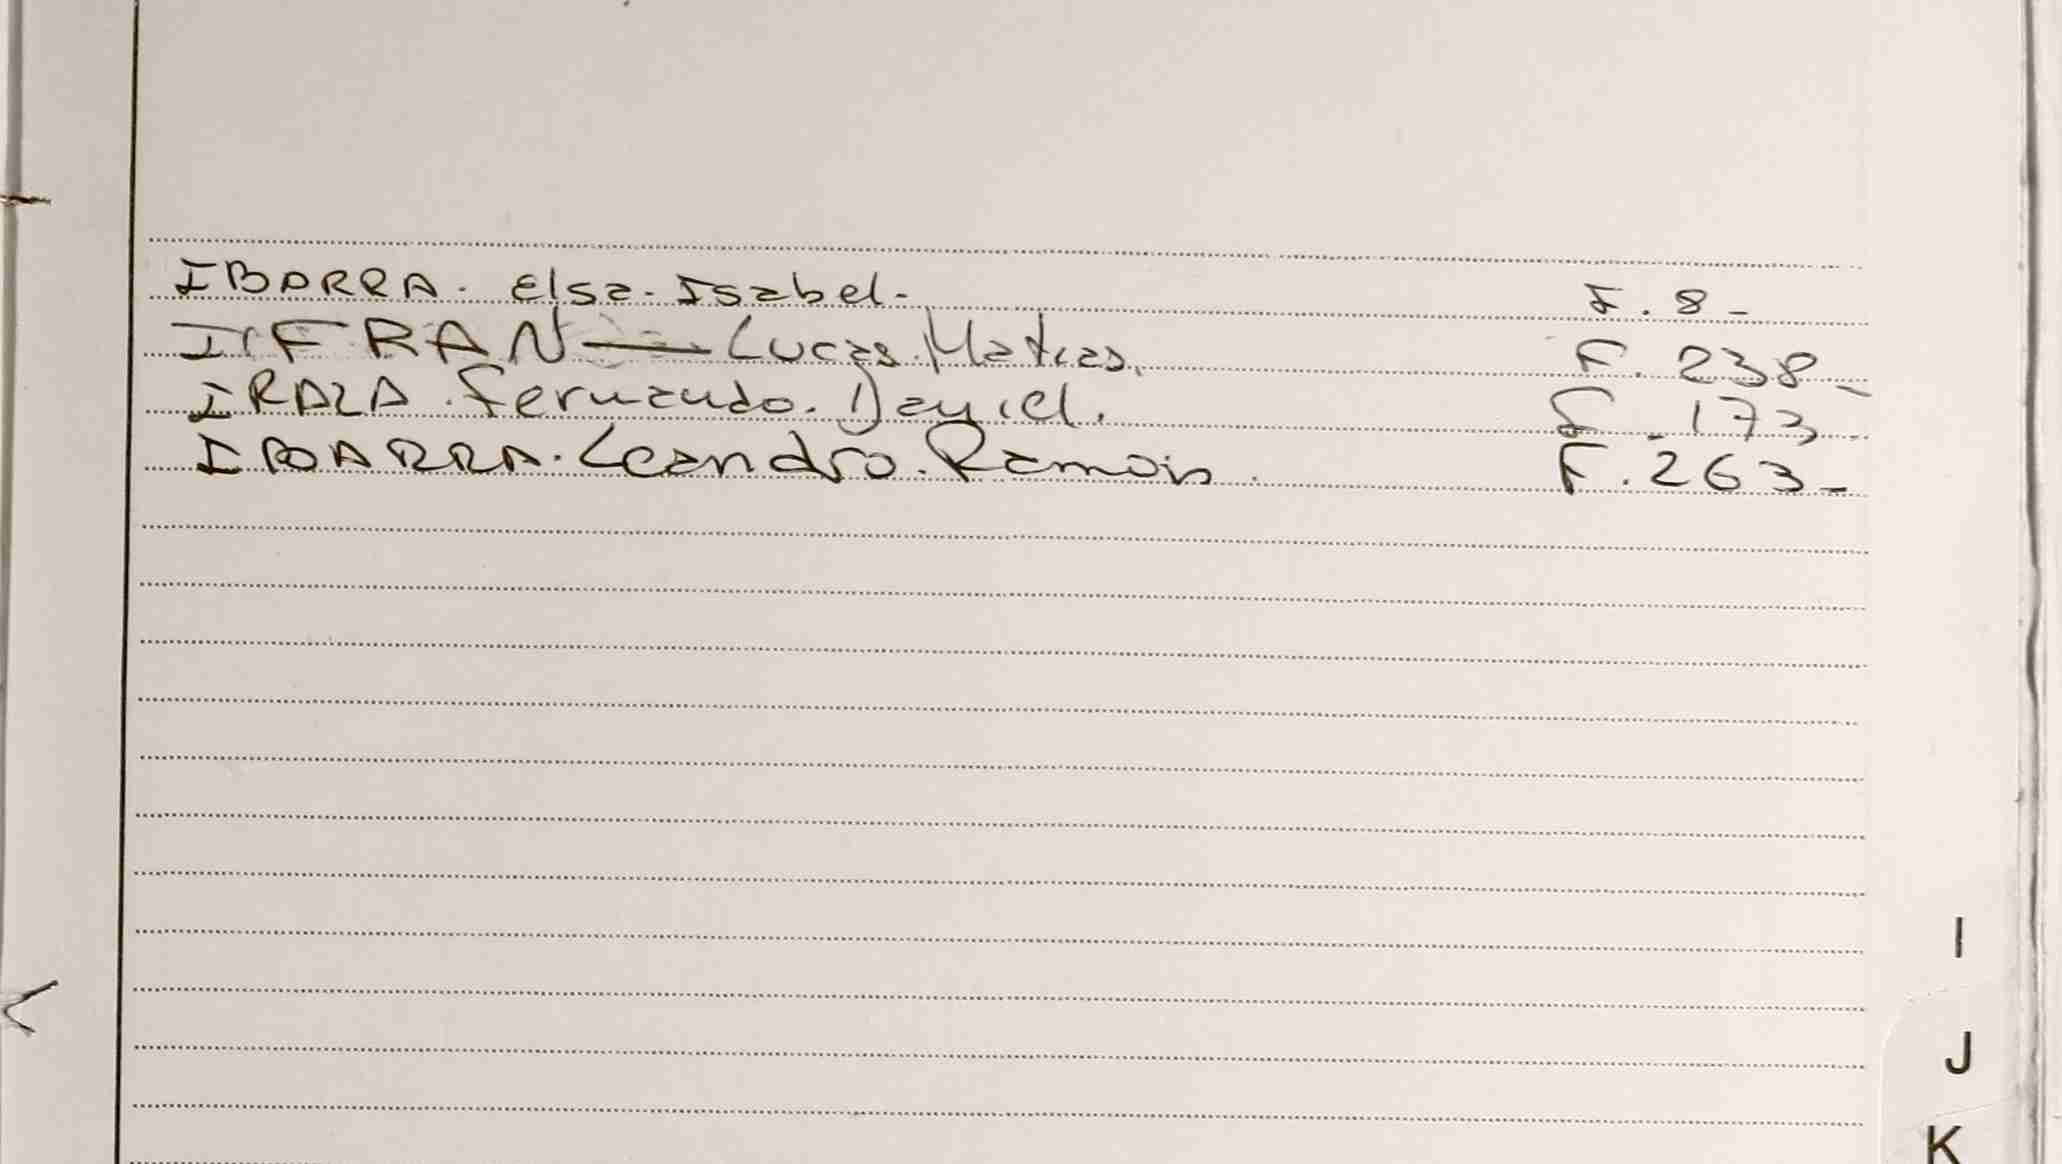 IBARRA. Elsa. Isabel. F. 8 -
IFRAN — Lucas Matias. F. 238 -
IRALA. Fernando. Daniel. F. 173 -
IBARRA. Leandro. Ramón. F. 263 -
I
J
K